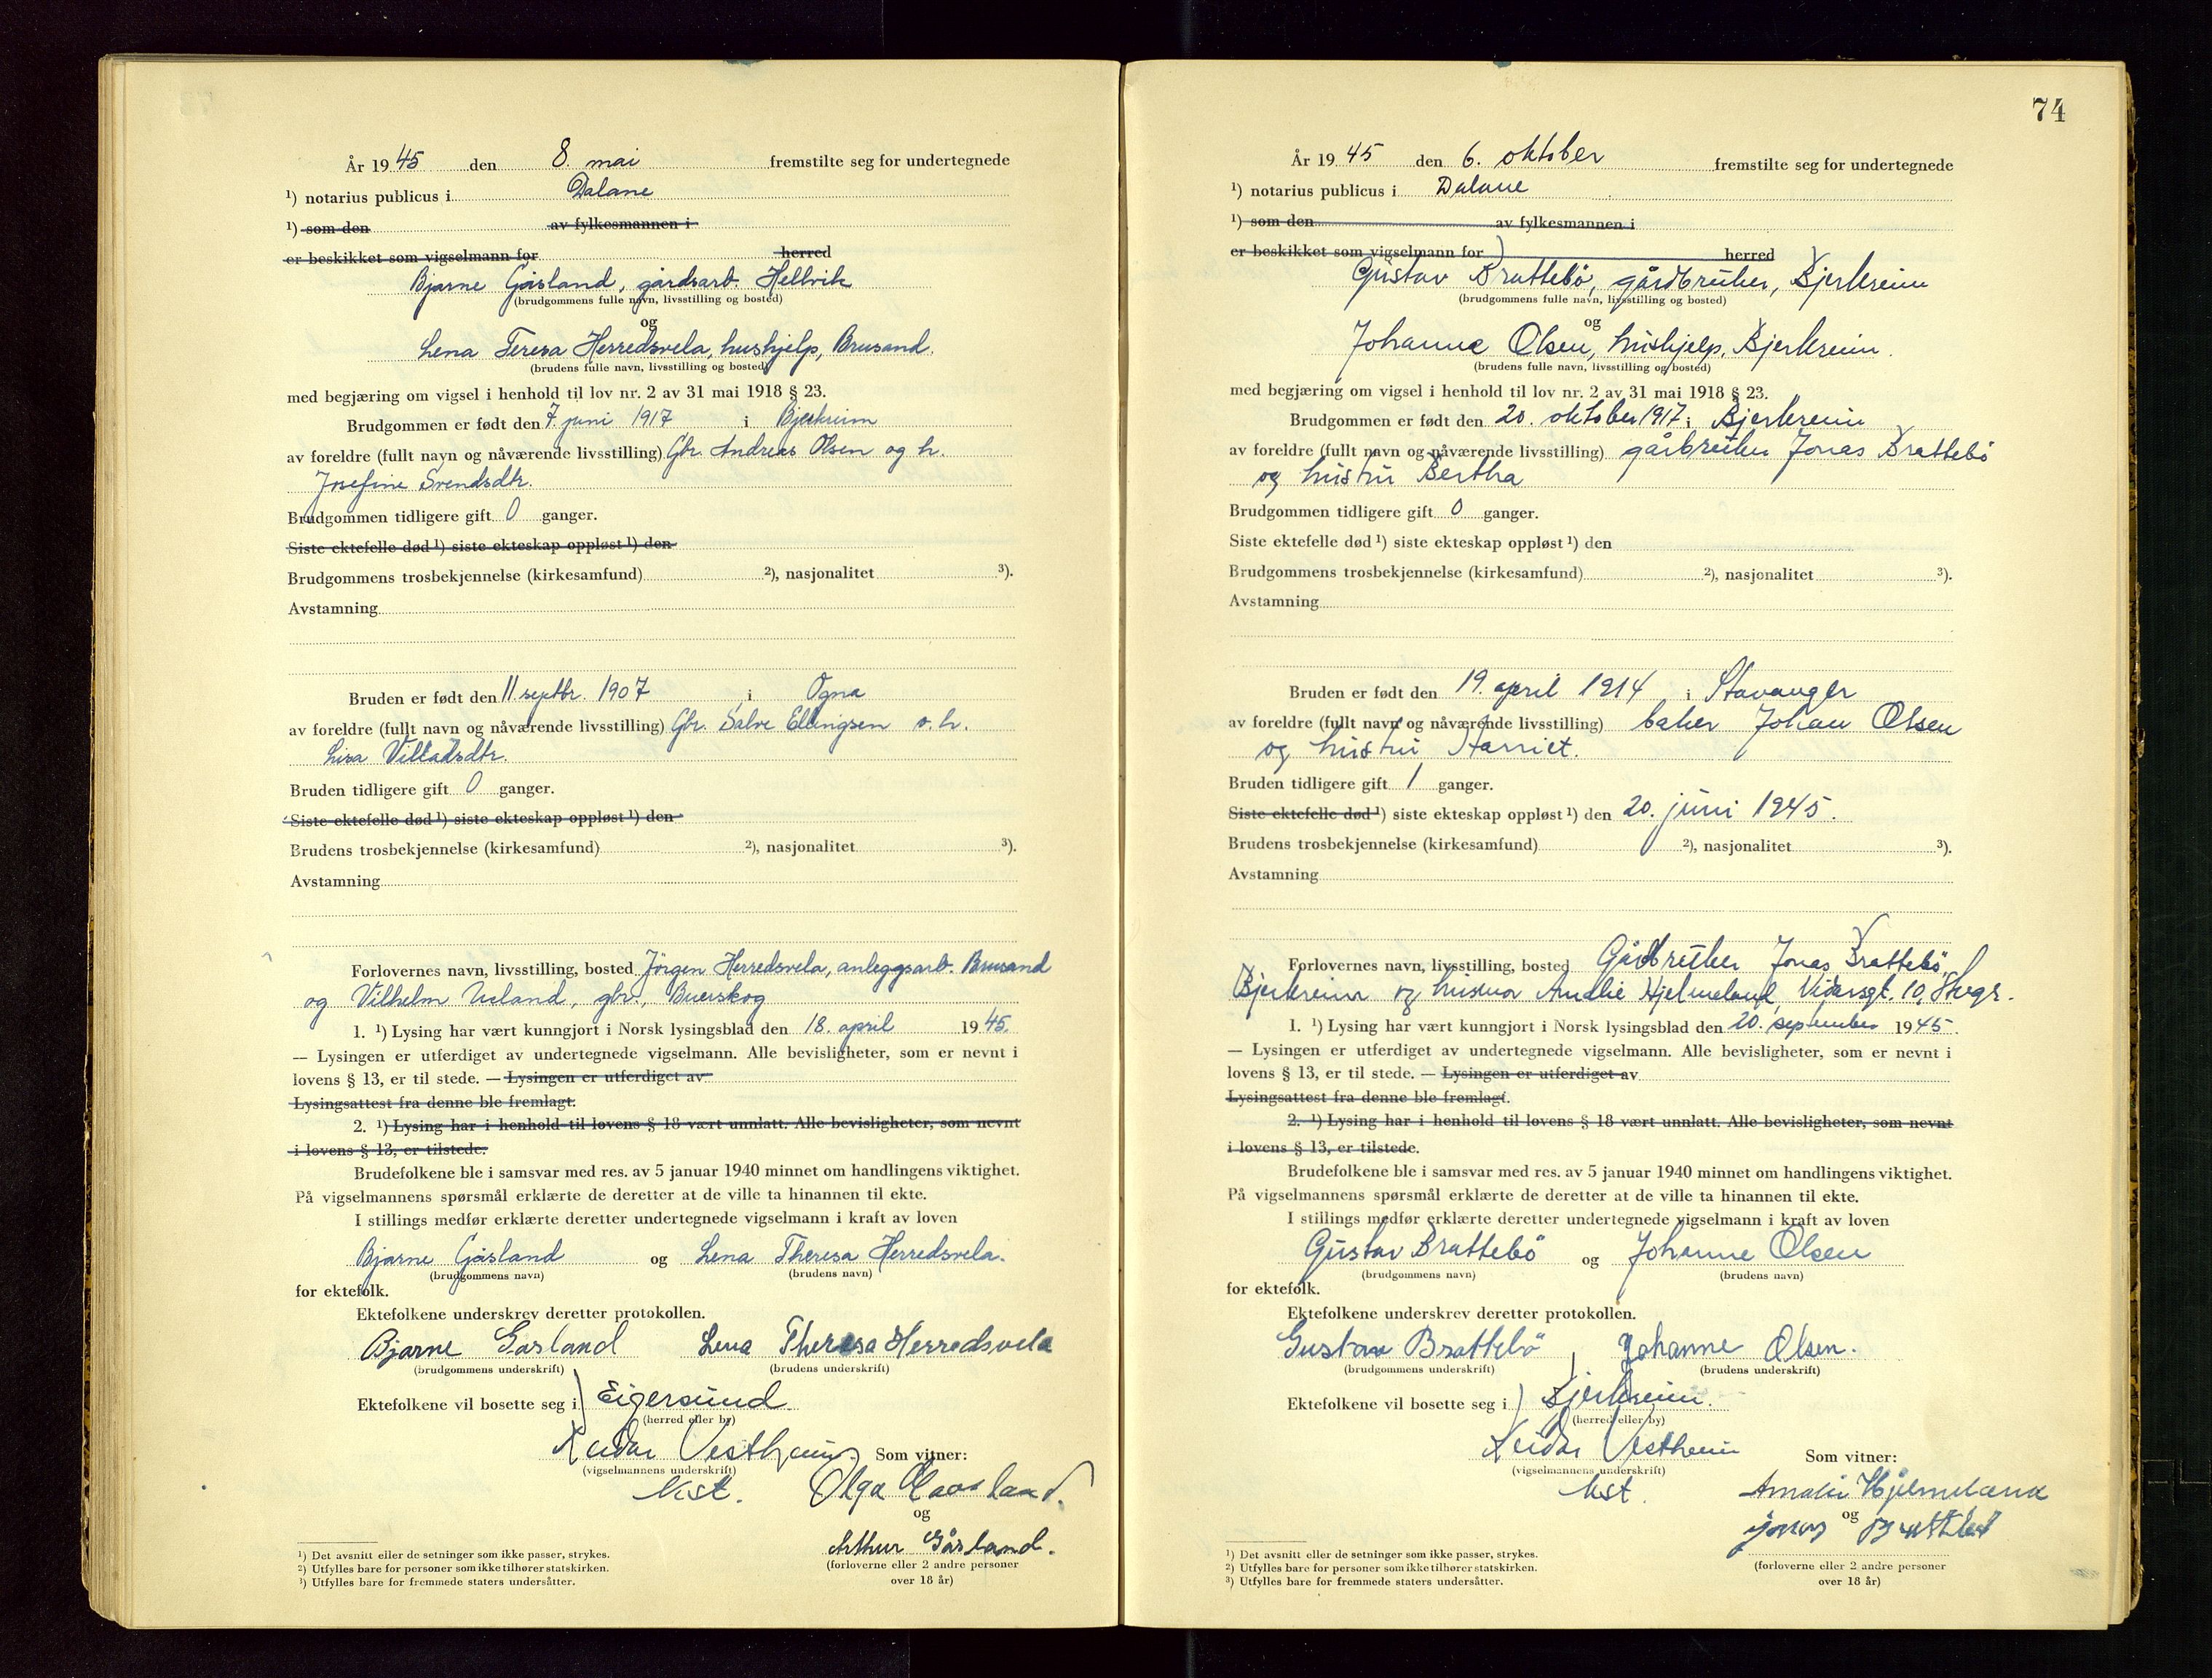 År 1945 den 8. mai fremstilte seg for undertegnede
¹) notarius publicus i Dalane
¹) som den av fylkesmannen i
er beskikket som vigselmann for herred
Bjarne Gåsland, gårdsarb. Hellvik
(brudgommens fulle navn, livsstilling og bosted)
og
Lena Teresa Herredsvela, hushjelp, Brusand.
(brudens fulle navn, livsstilling og bosted)
med begjæring om vigsel i henhold til lov nr. 2 av 31 mai 1918 § 23.
Brudgommen er født den 7. juni 1917 i Bjerkreim
av foreldre (fullt navn og nåværende livsstilling) Gbr. Andreas Olsen og h.
Josefine Svendsdtr.
Brudgommen tidligere gift 0 ganger.
Siste ektefelle død ¹) siste ekteskap oppløst ¹) den
Brudgommens trosbekjennelse (kirkesamfund) ²), nasjonalitet ³).
Avstamning
Bruden er født den 11 septbr. 1907 i Ogna
av foreldre (fullt navn og nåværende livsstilling) Gbr. Salve Ellingsen o. h.
Lisa Villadsdtr.
Bruden tidligere gift 0 ganger.
Siste ektefelle død ¹) siste ekteskap oppløst ¹) den
Brudens trosbekjennelse (kirkesamfund) ²), nasjonalitet ³).
Avstamning
Forlovernes navn, livsstilling, bosted Jörgen Herredsvela, anleggsarb. Brusand
og Vilhelm Usland, gbr., Buerskog
1. ¹) Lysing har vært kunngjort i Norsk lysingsblad den 18. april 1945.
— Lysingen er utferdiget av undertegnede vigselmann. Alle bevisligheter, som er nevnt i
lovens § 13, er til stede. — Lysingen er utferdiget av
Lysingsattest fra denne ble fremlagt.
2. ¹) Lysing har i henhold til lovens § 18 vært unnlatt. Alle bevisligheter, som nevnt
i lovens § 13, er tilstede.
Brudefolkene ble i samsvar med res. av 5 januar 1940 minnet om handlingens viktighet.
På vigselmannens spørsmål erklærte de deretter at de ville ta hinannen til ekte.
I stillings medfør erklærte deretter undertegnede vigselmann i kraft av loven
Bjarne Gåsland og Lena Theresa Herredsvela.
(brudgommens navn) (brudens navn)
for ektefolk.
Ektefolkene underskrev deretter protokollen.
Bjarne Gåsland Lena Theresa Herredsvela
(brudgommens underskrift) (brudens underskrift)
Ektefolkene vil bosette seg i Eigersund
(herred eller by)
Reidar Vestheim Som vitner:
(vigselmannens underskrift)
kst. Olga Gaasland.
og
Arthur Gåsland.
(forloverne eller 2 andre personer
over 18 år)
¹) Det avsnitt eller de setninger som ikke passer, strykes.
²) Utfylles bare for personer som ikke tilhører statskirken.
³) Utfylles bare for fremmede staters undersåtter.
74
År 1945 den 6. oktober fremstilte seg for undertegnede
¹) notarius publicus i Dalane
¹) som den av fylkesmannen i
er beskikket som vigselmann for herred
Gustav Brattebö, gårdbruker, Bjerkreim
(brudgommens fulle navn, livsstilling og bosted)
og
Johanne Olsen, hushjelp, Bjerkreim.
(brudens fulle navn, livsstilling og bosted)
med begjæring om vigsel i henhold til lov nr. 2 av 31 mai 1918 § 23.
Brudgommen er født den 20. oktober 1917 i Bjerkreim
av foreldre (fullt navn og nåværende livsstilling) gårbruker Jonas Brattebö
og hustru Bertha
Brudgommen tidligere gift 0 ganger.
Siste ektefelle død ¹) siste ekteskap oppløst ¹) den
Brudgommens trosbekjennelse (kirkesamfund) ²), nasjonalitet ³).
Avstamning
Bruden er født den 19. april 1914 i Stavanger
av foreldre (fullt navn og nåværende livsstilling) baker Johan Olsen
og hustru Harriet.
Bruden tidligere gift 1 ganger.
Siste ektefelle død ¹) siste ekteskap oppløst ¹) den 20. juni 1945.
Brudens trosbekjennelse (kirkesamfund) ²), nasjonalitet ³).
Avstamning
Forlovernes navn, livsstilling, bosted Gårdbruker Jonas Brattebö,
Bjerkreim og husmor Amalie Hjelmeland, Vidarsgt. 10, Stvgr.
1. ¹) Lysing har vært kunngjort i Norsk lysingsblad den 20. september 1945.
— Lysingen er utferdiget av undertegnede vigselmann. Alle bevisligheter, som er nevnt i
lovens § 13, er til stede. — Lysingen er utferdiget av
Lysingsattest fra denne ble fremlagt.
2. ¹) Lysing har i henhold til lovens § 18 vært unnlatt. Alle bevisligheter, som nevnt
i lovens § 13, er tilstede.
Brudefolkene ble i samsvar med res. av 5 januar 1940 minnet om handlingens viktighet.
På vigselmannens spørsmål erklærte de deretter at de ville ta hinannen til ekte.
I stillings medfør erklærte deretter undertegnede vigselmann i kraft av loven
Gustav Brattebö og Johanne Olsen
(brudgommens navn) (brudens navn)
for ektefolk.
Ektefolkene underskrev deretter protokollen.
Gustav Brattebö Johanne Olsen.
(brudgommens underskrift) (brudens underskrift)
Ektefolkene vil bosette seg i Bjerkreim.
(herred eller by)
Reidar Vestheim Som vitner:
(vigselmannens underskrift)
kst. Amalie Hjelmeland
og
Jonas Brattebö
(forloverne eller 2 andre personer
over 18 år)
¹) Det avsnitt eller de setninger som ikke passer, strykes.
²) Utfylles bare for personer som ikke tilhører statskirken.
³) Utfylles bare for fremmede staters undersåtter.